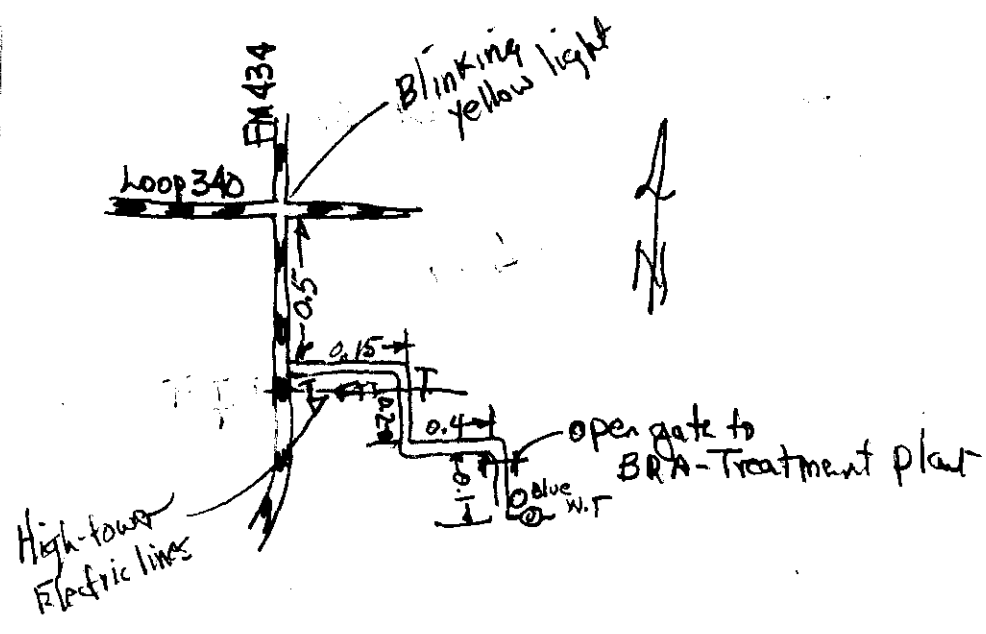 FM 434
Blinking
yellow light
Loop 340
N
0.5
0.15
T
T
0.2
0.4
Open gate to
BRA-Treatment plant
0.1
Blue
W.T
High-tower
Electric lines